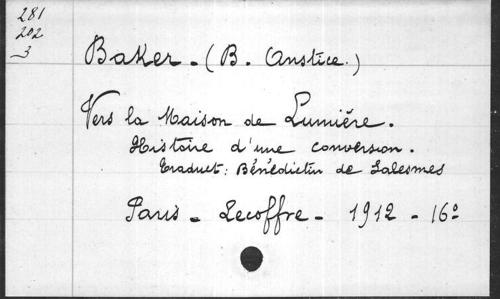 281
202
-3
Baker - (B. Anstice.)
Vers la Maison de Lumière.
Histoire d'une conversion.
Traduct: Bénédictin de Solesmes
Paris - Lecoffre - 1912 - 16°